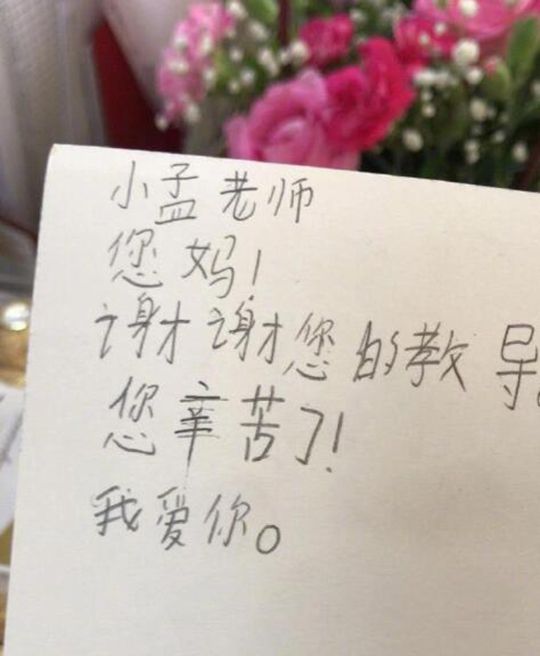 小孟老师
您妈!
谢谢您的教导。
您辛苦了!
我爱你。